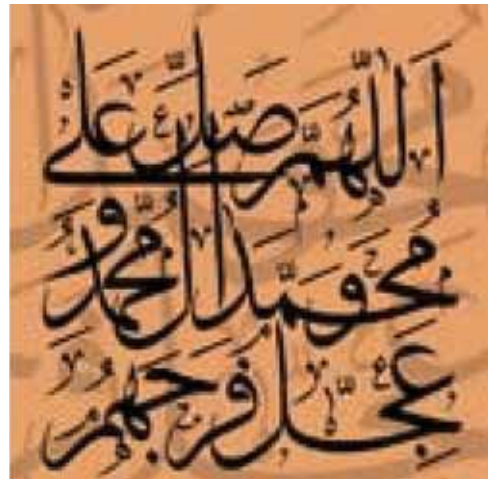 اَللّٰهُمَّ صَلِّ عَلٰی
مُحَمَّدٍ وَ آلِ مُحَمَّدٍ وَ
عَجِّلْ فَرَجَهُمْ